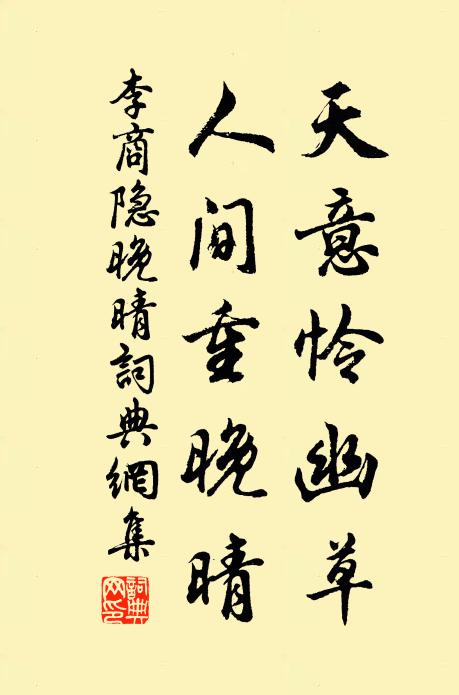 天意怜幽草
人间重晚晴
李商隐晚晴詞典網集
詞典
网印